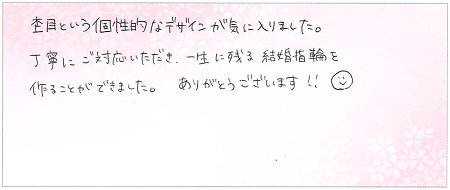 杢目という個性的なデザインが気に入りました。
丁寧にご対応いただき、一生に残る結婚指輪を
作ることができました。 ありがとうございます!!